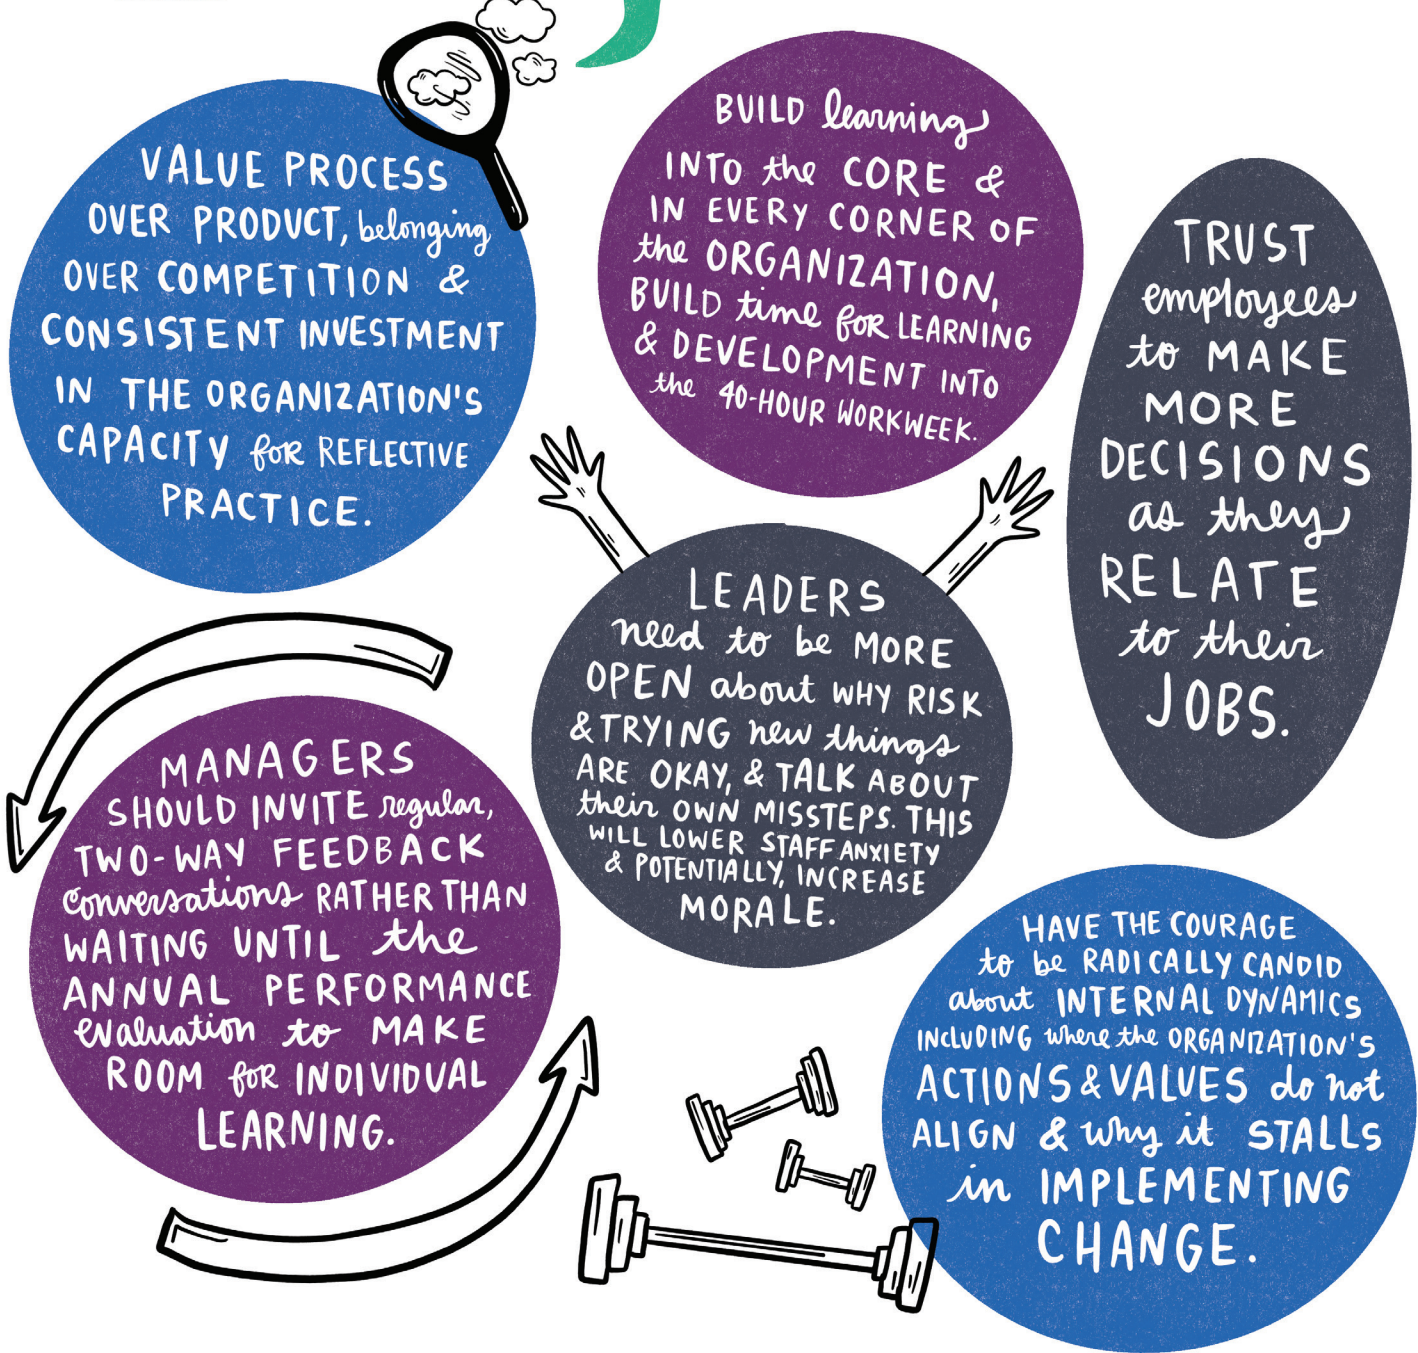 VALUE PROCESS
OVER PRODUCT, belonging
OVER COMPETITION &
CONSISTENT INVESTMENT
IN THE ORGANIZATION'S
CAPACITY for REFLECTIVE
PRACTICE.
BUILD learning
INTO the CORE &
IN EVERY CORNER OF
the ORGANIZATION,
BUILD time for LEARNING
& DEVELOPMENT INTO
the 40-HOUR WORKWEEK.
TRUST
employees
to MAKE
MORE
DECISIONS
as they
RELATE
to their
JOBS.
LEADERS
need to be MORE
OPEN about WHY RISK
& TRYING new things
ARE OKAY, & TALK ABOUT
their OWN MISSTEPS. THIS
WILL LOWER STAFF ANXIETY
& POTENTIALLY, INCREASE
MORALE.
MANAGERS
SHOULD INVITE regular,
TWO-WAY FEEDBACK
conversations RATHER THAN
WAITING UNTIL the
ANNUAL PERFORMANCE
evaluation to MAKE
ROOM for INDIVIDUAL
LEARNING.
HAVE THE COURAGE
to be RADICALLY CANDID
about INTERNAL DYNAMICS
INCLUDING where the ORGANIZATION'S
ACTIONS & VALUES do not
ALIGN & why it STALLS
in IMPLEMENTING
CHANGE.